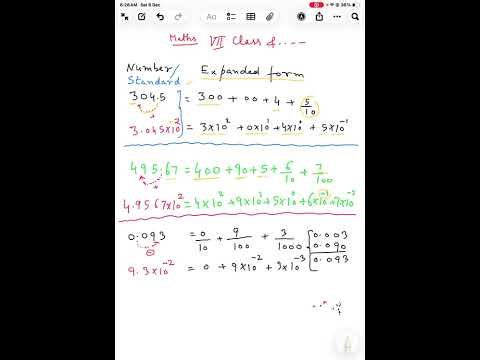 6:28 AM Sat 6 Dec 36%
Maths VII Class of----
Number/ Expanded form
Standard
304.5 = 300 + 00 + 4 + 5/10
3.045×10² = 3×10² + 0×10¹ + 4×10⁰ + 5×10⁻¹
495.67 = 400 + 90 + 5 + 6/10 + 7/100
4.9567×10² = 4×10² + 9×10¹ + 5×10⁰ + 6×10⁻¹ + 7×10⁻²
0.093 = 0/10 + 9/100 + 3/1000 0.003
0.090
9.3×10⁻² = 0 + 9×10⁻² + 3×10⁻³ 0.093